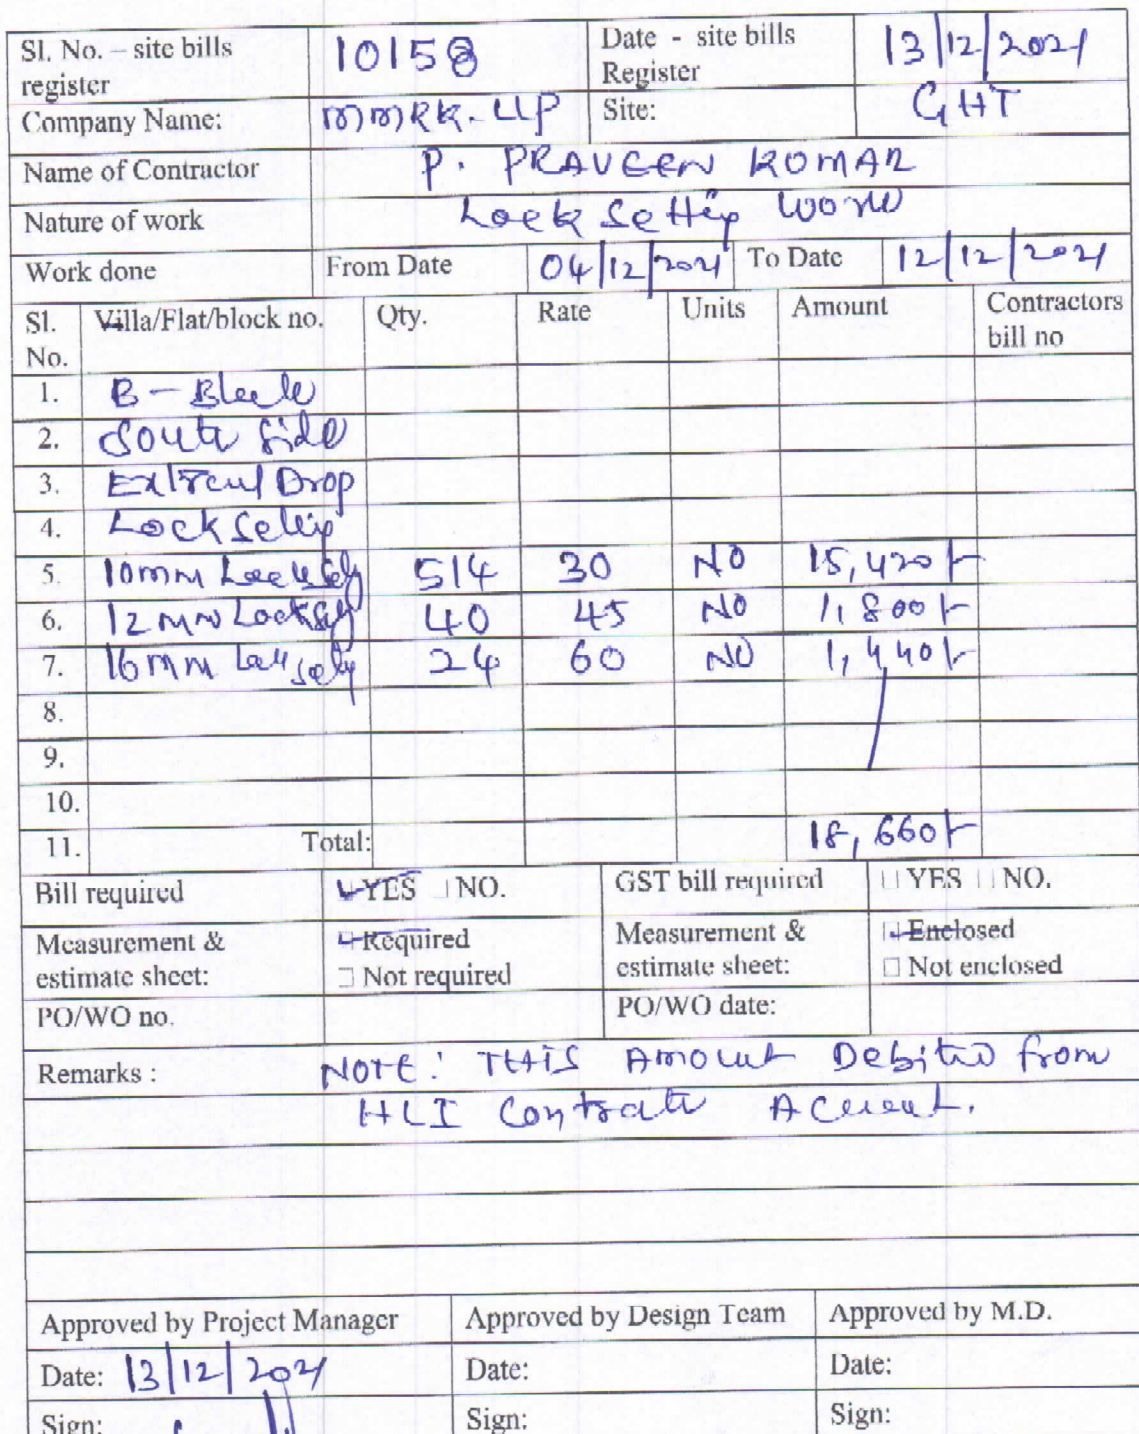 Sl. No. – site bills register 10158 Date - site bills Register 13/12/2021
Company Name: MMRK. LLP Site: GHT
Name of Contractor P. PRAVEEN KUMAR
Nature of work Lock Setting work
Work done From Date 04/12/2021 To Date 12/12/2021
Sl. No. Villa/Flat/block no. Qty. Rate Units Amount Contractors bill no
1. B - Block
2. South Side
3. Drop
4. Lock
5. 10mm 514 30 NO 15,420/-
6. 12mm 40 45 NO 1,800/-
7. 16mm 24 60 NO 1,440/-
8.
9.
10.
11. Total: 18,660/-
Bill required YES NO. GST bill required YES NO.
Measurement & estimate sheet: Required Measurement & estimate sheet: Enclosed
Not required Not enclosed
PO/WO no. PO/WO date:
Remarks : NOTE: THIS Amount Debited from
HLI
Approved by Project Manager Approved by Design Team Approved by M.D.
Date: 13/12/2021 Date: Date:
Sign: Sign: Sign: